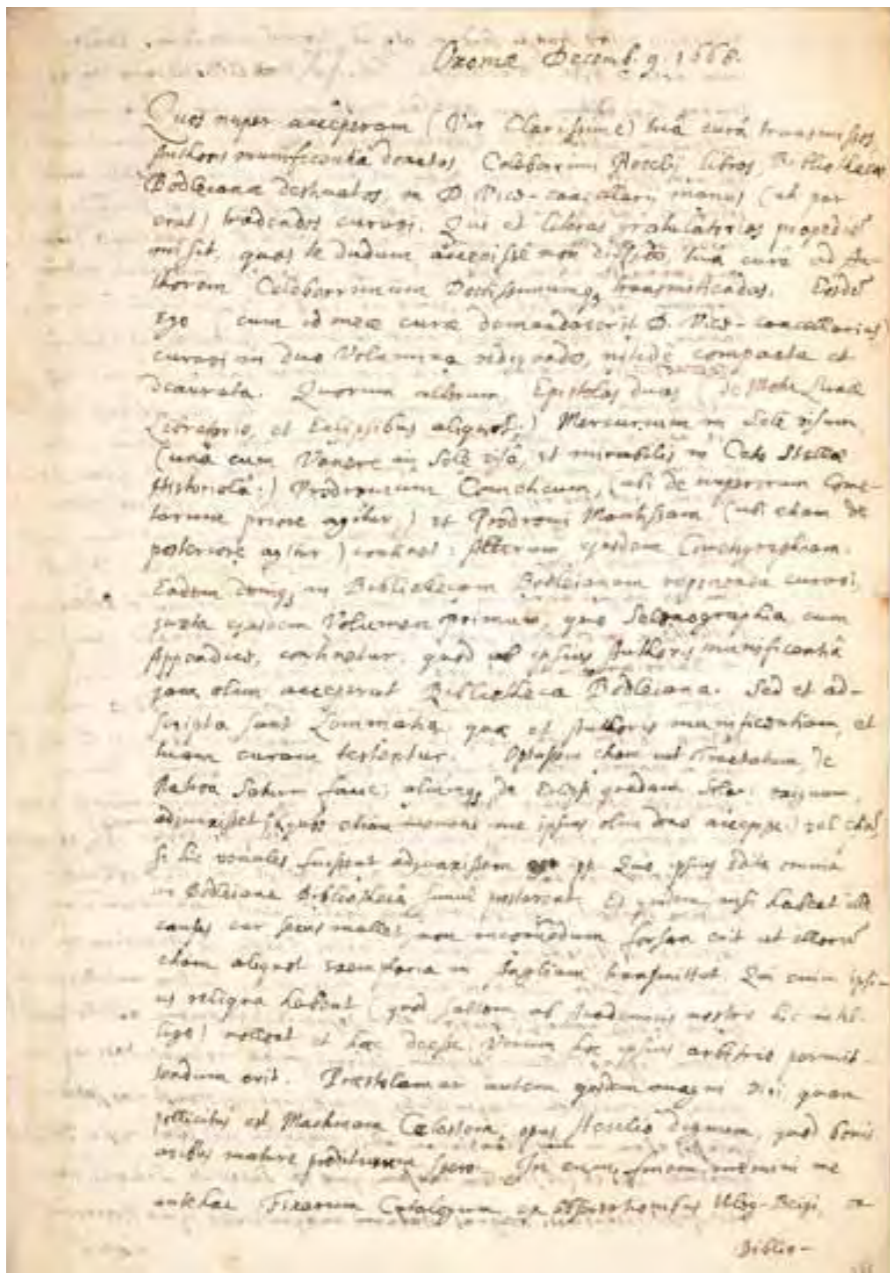 Oxoniæ Decemb. 9. 1668.
Quos nuper acceperam (Vir Clarissime) tuâ curâ transmissos
Authoris munificentiâ donatos, Celeberrimi Hevelij libros, Bibliothecæ
Bodleianæ destinatos, in D. Vice-cancellarij manus (ut par
erat) tradendos curavi. Qui et literas gratulatorias propediē
misit, quas te dudum accepisse non diffido, tuâ curâ ad Au-
thorem Celeberrimum Doctissimumq, transmittendas. Eosdē
ego (cum id meæ curæ demandaverit D. Vice-cancellarius)
curavi in duo Volumina redigendos, nitide compacta et
deaurata. Quorum alterum, Epistolas duas (de Motu Lunæ
Libratorio, et Eclipsibus aliquot;) Mercurium in Sole visum,
(unà cum Venere in Sole visâ, et mirabilis in Ceto Stellæ
Historiolâ:) Prodromum Cometicum, (ubi de nuperorum Come-
tarum priore agitur,) et Prodromi Mantissam (ubi etiam de
posteriore agitur) continet: Alterum, ejusdem Cometographiam.
Eademq, in Bibliothecam Bodleianam reponenda curavi,
juxta ejusdem Volumen primum, quo Selenographia, cum
Appendice, continetur, quod ab ipsius Authoris munificentiâ
jam olim acceperat Bibliotheca Bodleiana. Sed et ad-
scripta sunt Lemmata, quæ et Authoris munificentiam, et
tuam curam testentur. Optassem etiam ut Tractatum, de
Nativa Saturni facie; aliumq, de
adjunxisset (quos etiam me ipsius olim dono accepisse) vel etiā
si hic venales fuissent adjunxissem Quo ipsius edita omnia
in Bodleiana Bibliothecâ simul prostarent. Et quidem nisi habeat ille
causas cur secus mallet, non incommodum forsan erit ut illorū
etiam aliquot exemplaria in Angliam transmittat. Qui enim ipsi-
us reliqua habent (quod saltem ab Academicis nostris hic intel-
ligo) nollent et hæc deesse. Verum hoc ipsius arbitrio permit-
tendum erit. Præstolamur autem quam
pollicitus est Machinam Cœlestem, opus Hevelio dignum, quod bonis
avibus mature proditurum spero. In eum finem memini me
antehac Fixarum Catalogum ex observationibus Uleg-Beigi, e
Biblio-